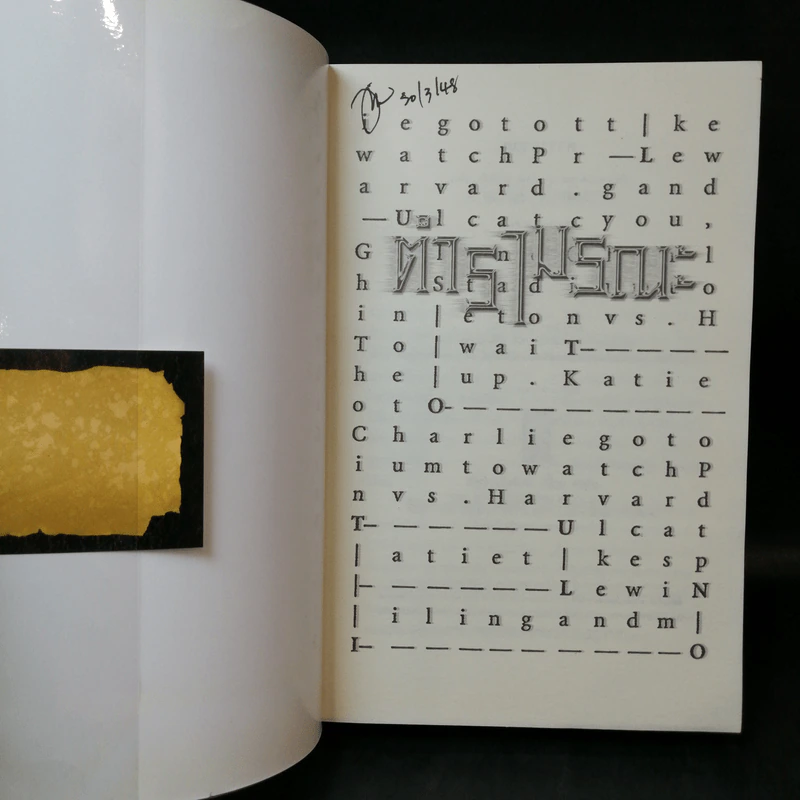 30/3/48
i e g o t o t t | k e
w a t c h P r — L e w
a r v a r d . g a n d
— U l c a t c y o u ,
ตำรามรณะ
i n | e t o n v s . H
T o | w a i T — — — —
h e | u p . K a t i e
o t O - — — — — — — — —
C h a r l i e g o t o
i u m t o w a t c h P
n v s . H a r v a r d
T — — — — — — U l c a t
| a t i e t | k e s p
| — — — — — — L e w i N
| i l i n g a n d m |
I — — — — — — — — — — O